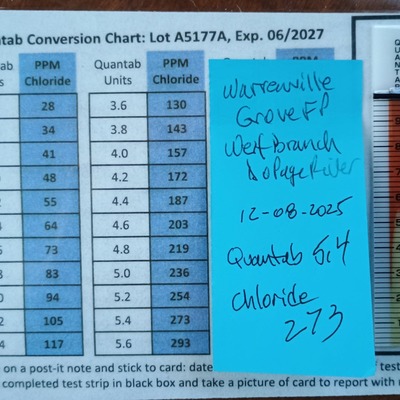 ntab Conversion Chart: Lot A5177A, Exp. 06/2027
PPM Chloride
28
34
41
48
55
64
73
83
94
105
117
Quantab Units PPM Chloride
3.6 130
3.8 143
4.0 157
4.2 172
4.4 187
4.6 203
4.8 219
5.0 236
5.2 254
5.4 273
5.6 293
Warrenville
Grove FP
West Branch
DuPage River
12-08-2025
Quantab 5,4
Chloride
273
QUANTAB
on a post-it note and stick to card: date
of test
completed test strip in black box and take a picture of card to report with